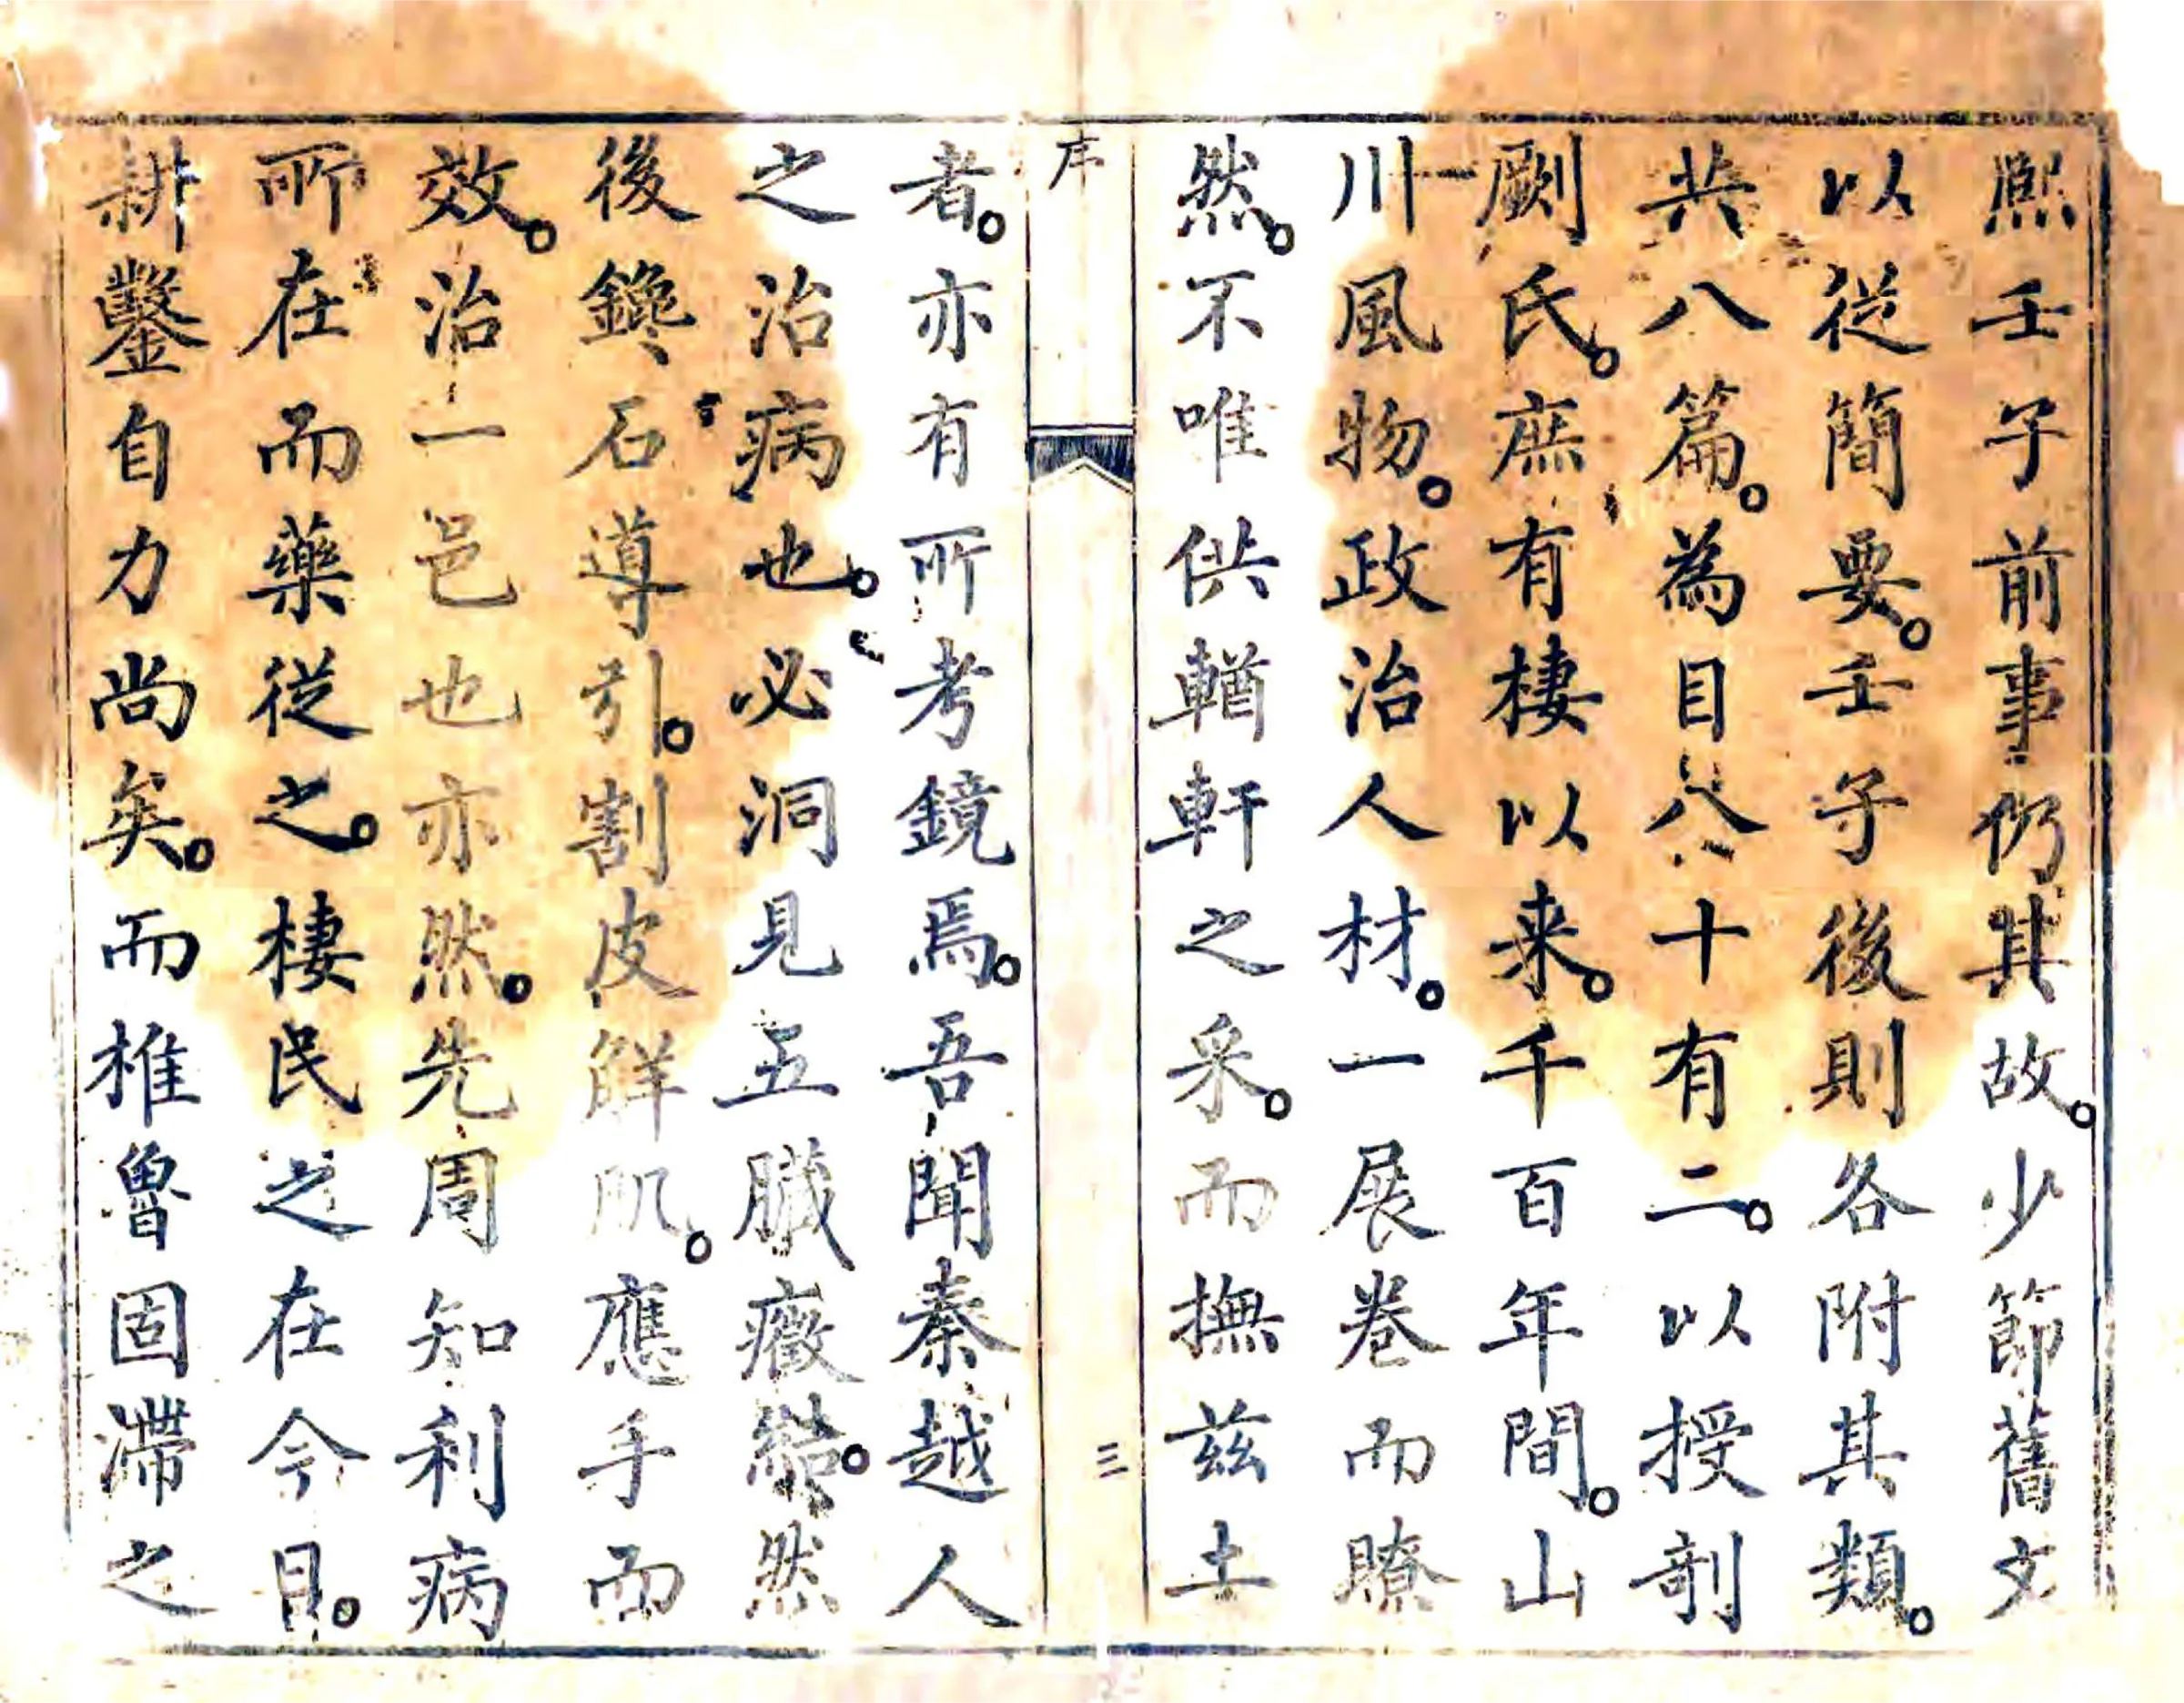 熙壬子前事仍其故。少節舊文
以從簡要。壬子後則各附其類。
共八篇。為目八十有二。以授剞
劂氏。庶有棲以来。千百年間。山
川風物。政治人材。一展卷而瞭
然。不唯供輶軒之采。而撫茲土
序
三
者。亦有所考鏡焉。吾聞秦越人
之治病也。必洞見五臟癥結。然
後鑱石導引。割皮解肌。應手而
效。治一邑也亦然。先周知利病
所在而藥從之。棲民之在今日。
耕鑿自力尚矣。而椎魯固滯之